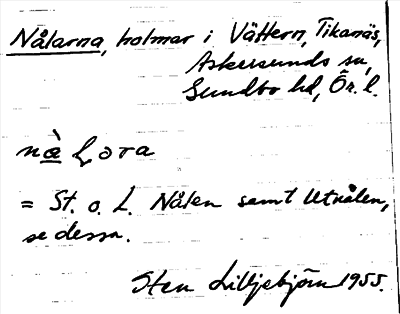 Nålarna, holmar i Vättern, Tikanäs,
Askersunds sn,
Sundbo hd, Ör. l.
= St. o. L. Nålen samt Utnålen,
se dessa.
Sten Lilljebjörn 1955.